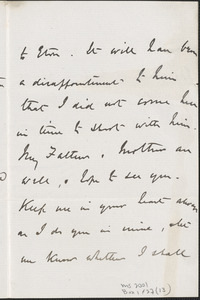 to Eton. It will have been
a disappointment to him
that I did not come here
in time to shoot with him.
My Father & Mother are
well, & hope to see you.
Keep me in your heart always
as I do you in mine, & let
me know whether I shall
MS 2001